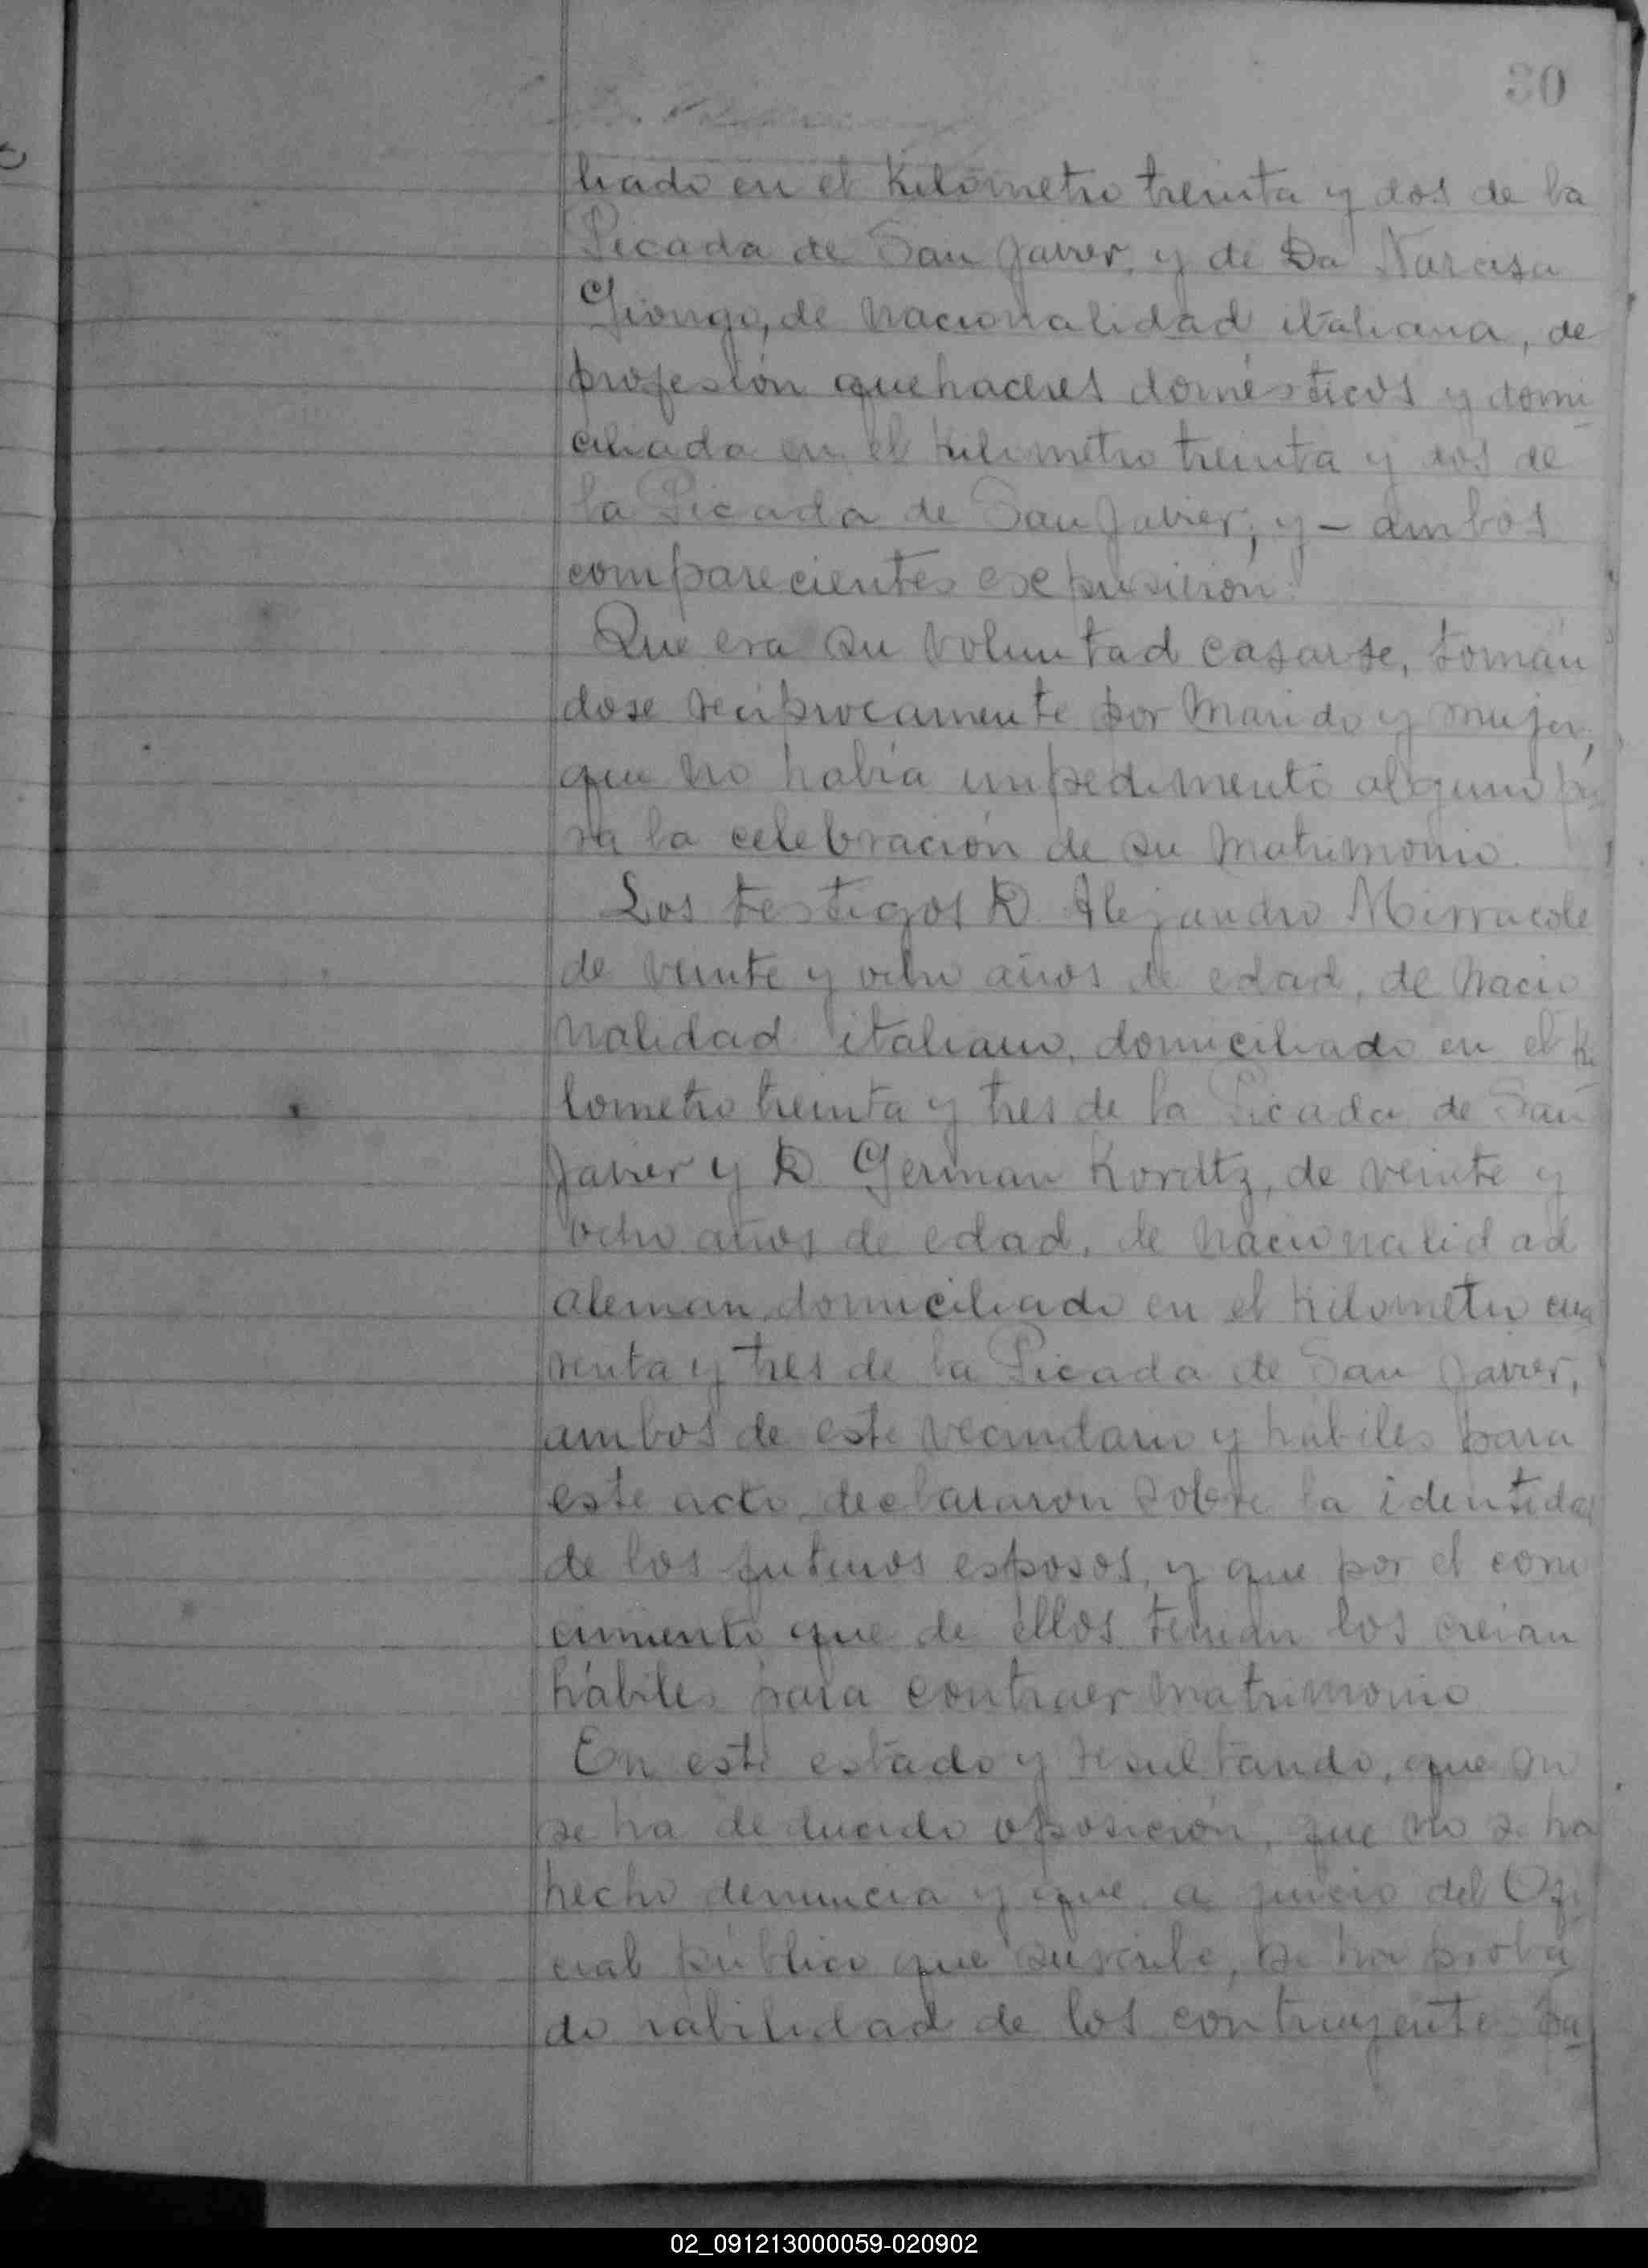 30
liado en el Kilómetro treinta y dos de la
Picada de San Javier, y de Da Narcisa
Giongo, de nacionalidad italiana, de
profesión quehaceres domésticos y domi
ciliada en el Kilometro treinta y dos de
la Picada de San Javier; y – ambos
comparecientes expusieron:
Que era su voluntad casarse, toman
dose reciprocamente por marido y mujer,
que no había impedimento alguno pa
ra la celebración de su matrimonio.
Los testigos D. Alejandro Mirracole
de veinte y ocho años de edad, de nacio
nalidad italiano, domiciliado en el Ki
lometro treinta y tres de la Picada de San
Javier y D. German Kordtz, de veinte y
ocho años de edad, de nacionalidad
aleman, domiciliado en el Kilometro cua
renta y tres de la Picada de San Javier,
ambos de este vecindario y hábiles para
este acto, declararon sobre la identidad
de los futuros esposos, y que por el cono
cimiento que de éllos tenían los creian
hábiles para contraer matrimonio
En este estado y resultando, que no
se ha deducido oposición, que no se ha
hecho denuncia y que a juicio del Ofi
cial público que suscribe, se ha proba
do habilidad de los contrayentes pa
02_091213000059-020902